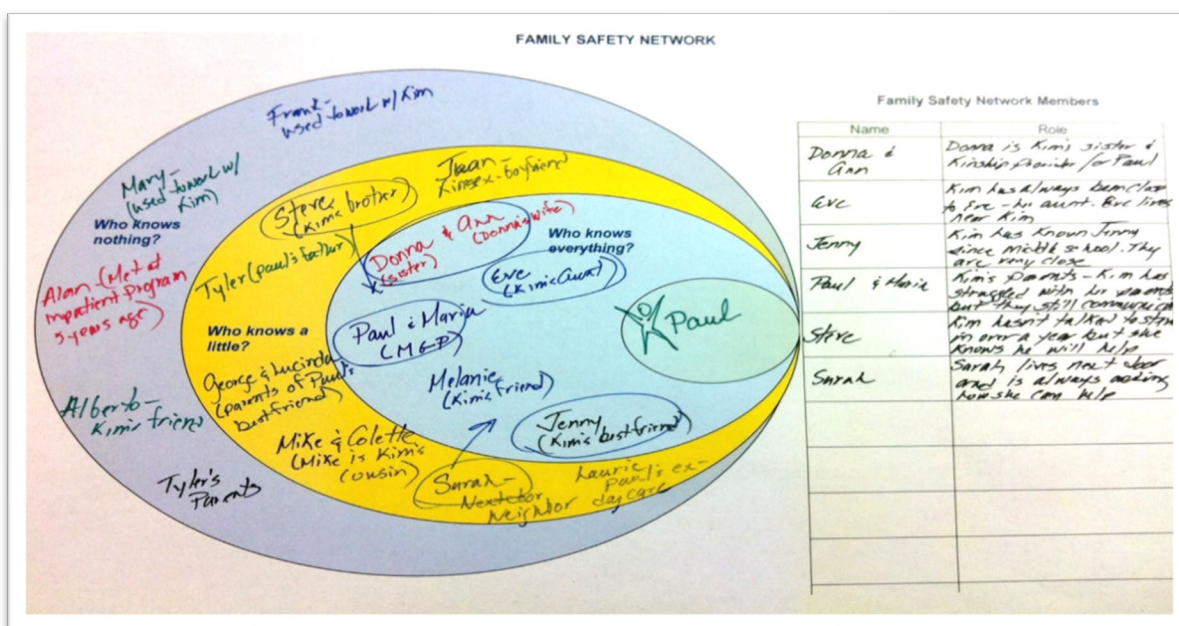 FAMILY SAFETY NETWORK
Frank-
used to work w/ Kim
Mary-
(used to work w/
Kim)
Who knows
nothing?
Alan (Met at
inpatient program
5 years ago)
Alberto-
Kim's friend
Tyler's
Parents
Juan-
Kim's ex-boyfriend
Steve
(Kim's brother)
Tyler (paul's father)
Who knows a
little?
George & Lucinda
(parents of Paul's
best friend)
Mike & Colette
(Mike is Kim's
cousin)
Sarah-
Next door
neighbor
Laurie
Paul's ex-
daycare
Donna & Ann
(sister) (Donna's wife)
Who knows
everything?
Eve
(Kim's Aunt)
Paul & Maria
(MGP)
Melanie
(Kim's friend)
Jenny
(Kim's best friend)
Paul
Family Safety Network Members
Name Role
Donna &
Ann
Donna is Kim's sister &
Kinship provider for Paul
Eve
Kim has always been close
to Eve - her aunt. Eve lives
near Kim
Jenny
Kim has known Jenny
since middle school. They
are very close
Paul & Maria
Kim's parents - Kim has
struggled with her parents
but they still communicate
Steve
Kim hasn't talked to Steve
in over a year but she
knows he will help
Sarah
Sarah lives next door
and is always asking
how she can help